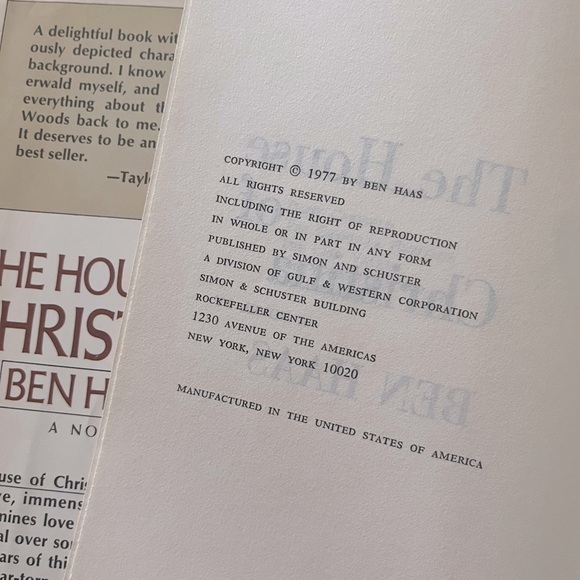 A delightful book
ously depicted
background. I know
erwald myself, and
everything about
Woods back to me.
It deserves to be an
best seller.
HE
BEN
A
of
immens
love
al over
ars of
COPYRIGHT © 1977 BY BEN HAAS
ALL RIGHTS RESERVED
INCLUDING THE RIGHT OF REPRODUCTION
IN WHOLE OR IN PART IN ANY FORM
PUBLISHED BY SIMON AND SCHUSTER
A DIVISION OF GULF & WESTERN CORPORATION
SIMON & SCHUSTER BUILDING
ROCKEFELLER CENTER
1230 AVENUE OF THE AMERICAS
NEW YORK, NEW YORK 10020
MANUFACTURED IN THE UNITED STATES OF AMERICA
The House
of
BEN HAAS